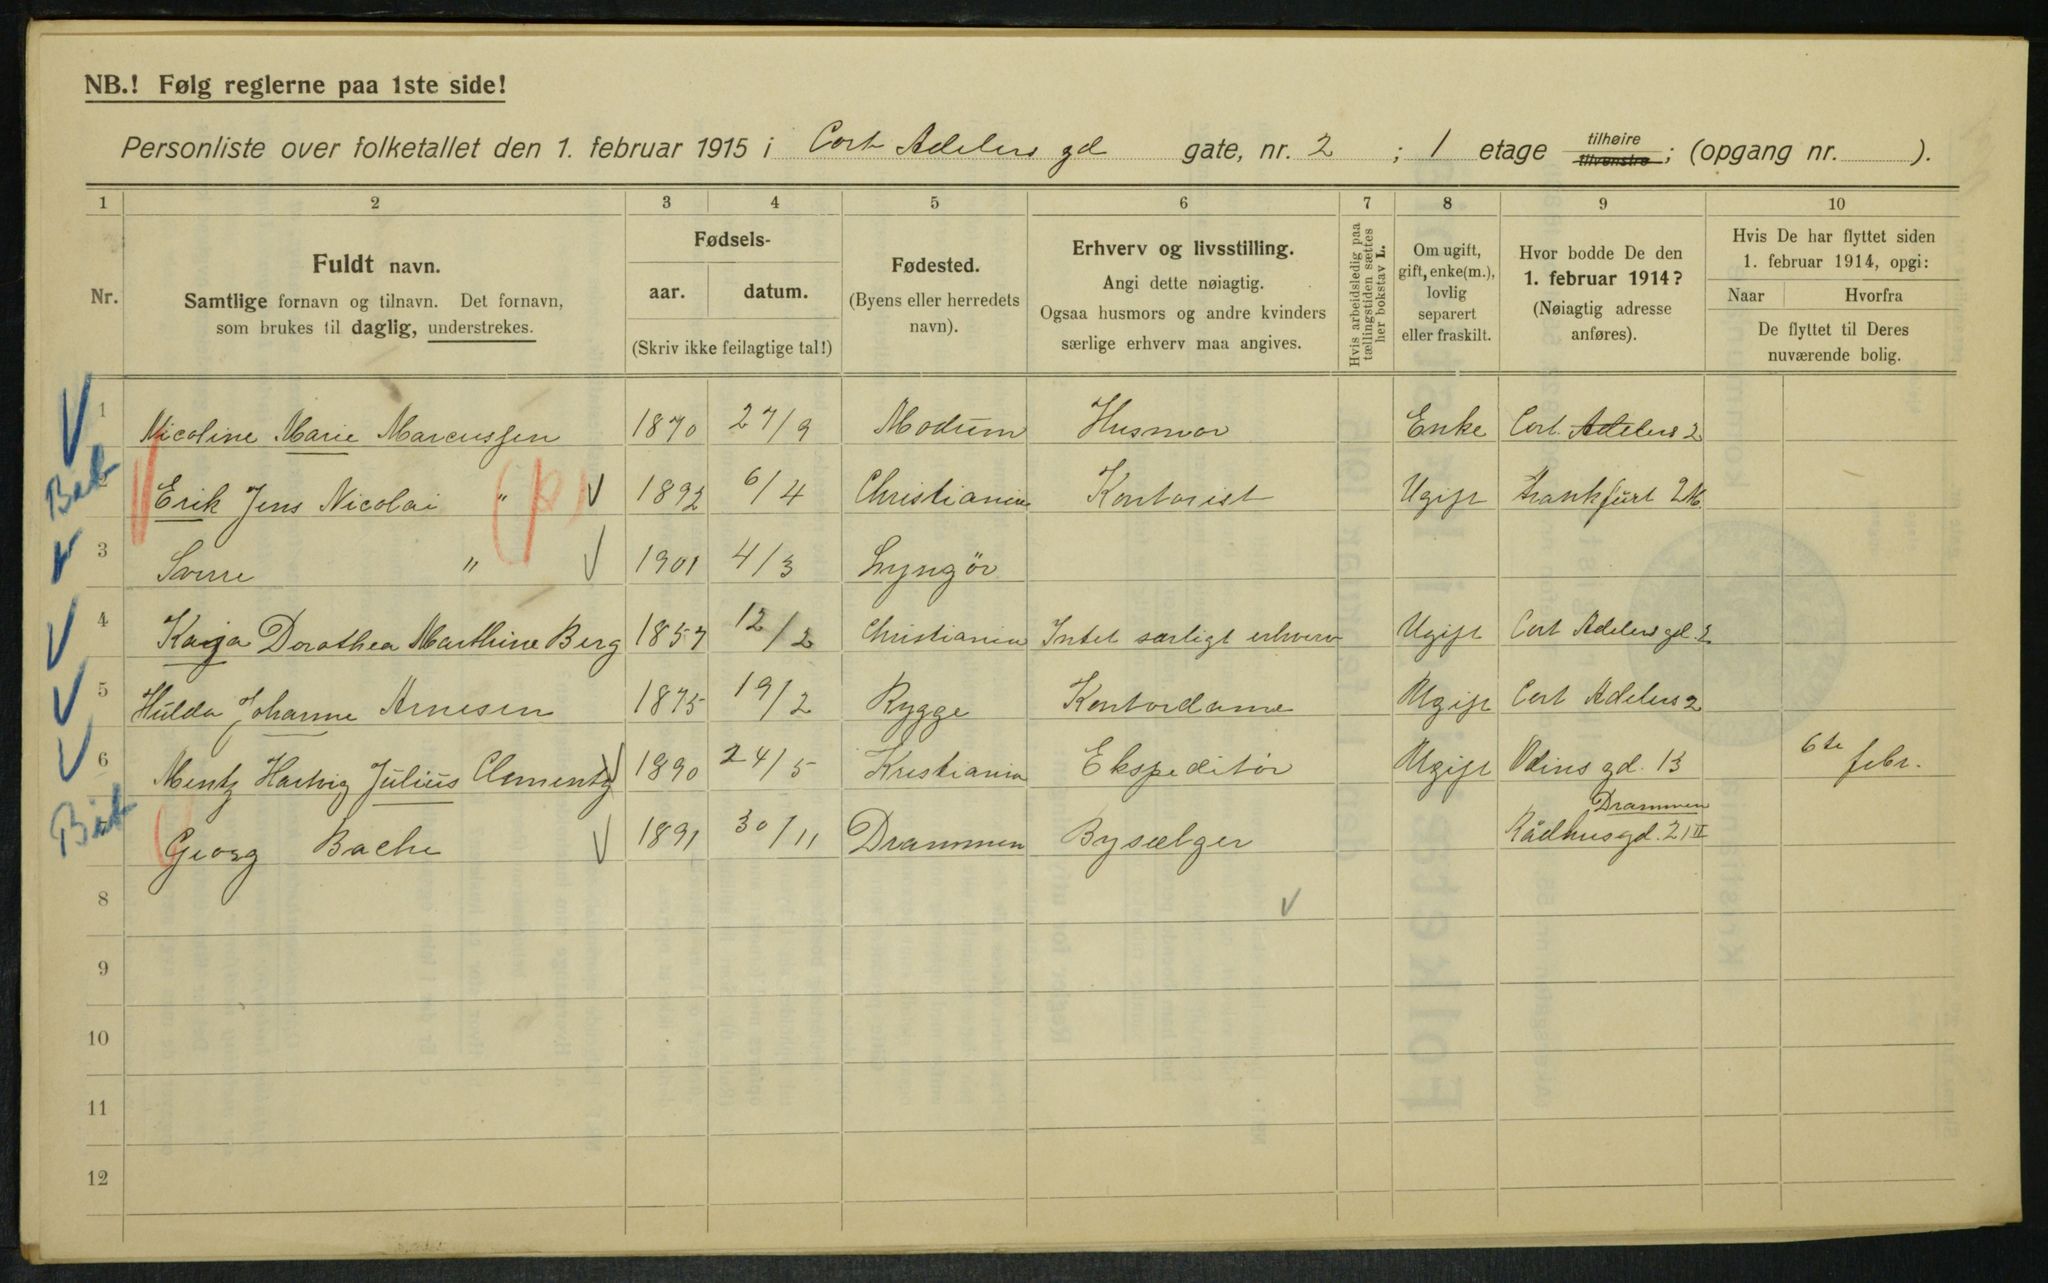 NB.! Følg reglerne paa 1ste side!
Personliste over folketallet den 1. februar 1915 i Cort Adelers gd gate, nr. 2 ; 1 etage tilhøire tilvenstre; (opgang nr. ).
1 2 3 4 5 6 7 8 9 10
Nr.
Fuldt navn.
Samtlige fornavn og tilnavn. Det fornavn,
som brukes til daglig, understrekes.
Fødsels-
aar. datum.
(Skriv ikke feilagtige tal!)
Fødested.
(Byens eller herredets
navn).
Erhverv og livsstilling.
Angi dette nøiagtig.
Ogsaa husmors og andre kvinders
særlige erhverv maa angives.
Hvis arbeidsledig paa
tællingstiden sættes
her bokstav L.
Om ugift,
gift, enke(m.),
lovlig
separert
eller fraskilt.
Hvor bodde De den
1. februar 1914?
(Nøiagtig adresse
anføres).
Hvis De har flyttet siden
1. februar 1914, opgi:
Naar Hvorfra
De flyttet til Deres
nuværende bolig.
1 Nicoline Marie Marcussen 1870 27/9 Modum Husmor Enke Cort Adelers 2
Erik Jens Nicolai " (p) 1892 6/4 Christiania Kontorist Ugift Frankfurt 2 M.
3 " 1901 4/3 Lyngör
4 Kaja Dorothea Marthine Berg 1857 12/2 Christiania Intet særligt erhverv Ugift Cort Adelers gd. 2
5 Hulda Johanne Arnesen 1875 19/2 Rygge Kontordame Ugift Cort Adelers 2
6 Mentz Hartvig Julius Clementz 1890 24/5 Kristiania Ekspeditør Ugift Odins gd. 13 6te febr.
Georg Bache 1891 30/11 Drammen Bysælger Drammen Rådhusgd. 21 II
8
9
10
11
12